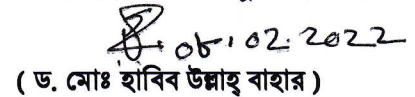 ০৮.০২.২০২২
( ড. মোঃ হাবিব উল্লাহ্ বাহার )